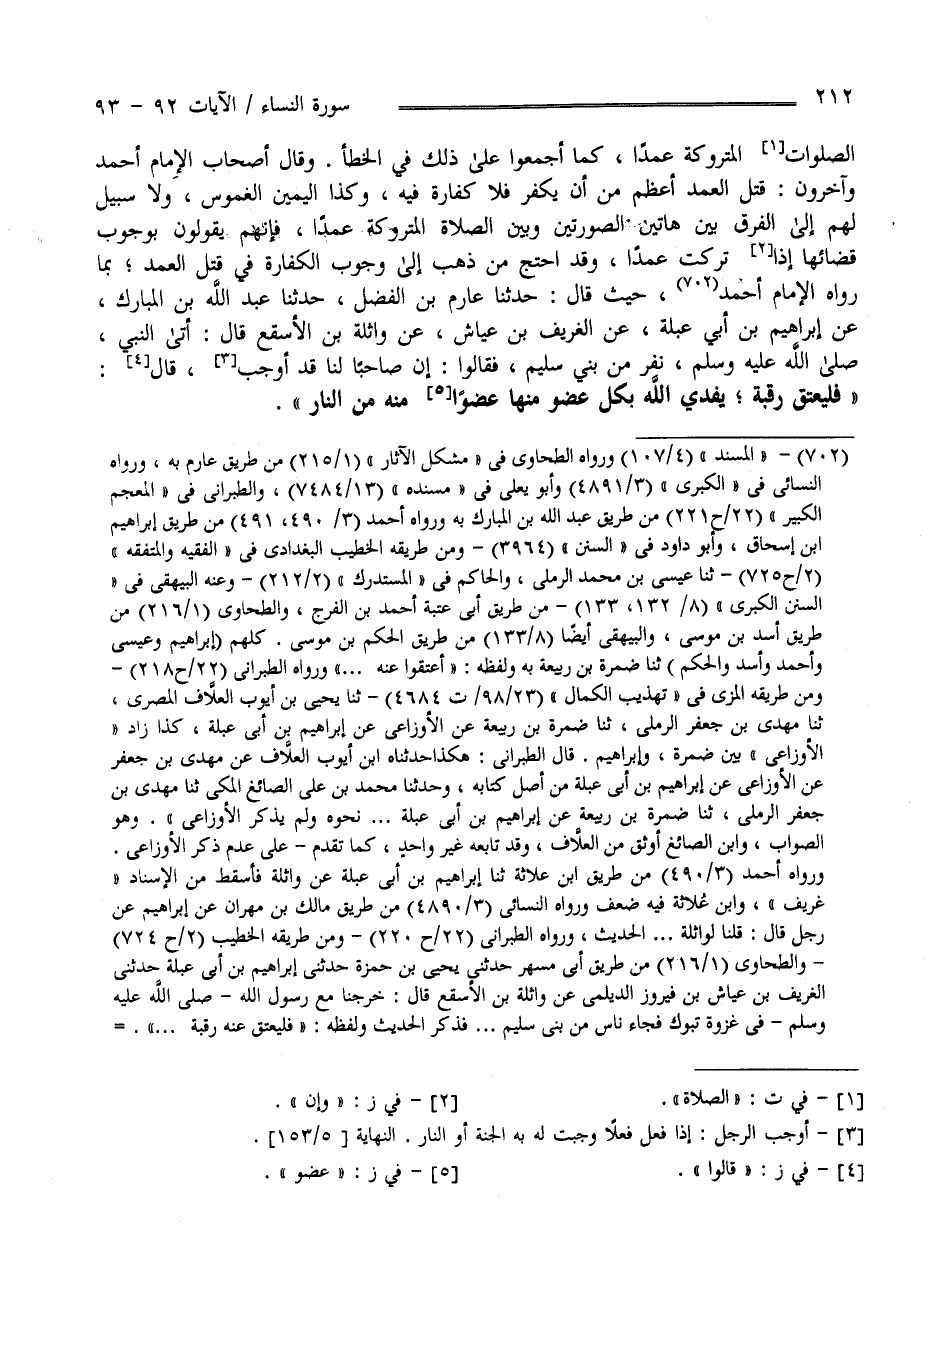 ٢١٢ سورة النساء / الآيات ٩٢ - ٩٣
الصلوات[١] المتروكة عمدًا ، كما أجمعوا علىٰ ذلك في الخطأ . وقال أصحاب الإمام أحمد
وآخرون : قتل العمد أعظم من أن يكفر فلا كفارة فيه ، وكذا اليمين الغموس ، ولا سبيل
لهم إلىٰ الفرق بين هاتين الصورتين وبين الصلاة المتروكة عمدًا ، فإنهم يقولون بوجوب
قضائها إذا[٢] تركت عمدًا ، وقد احتج من ذهب إلىٰ وجوب الكفارة في قتل العمد ؛ بما
رواه الإمام أحمد(٧٠٢) ، حيث قال : حدثنا عارم بن الفضل ، حدثنا عبد اللَّه بن المبارك ،
عن إبراهيم بن أبي عبلة ، عن الغريف بن عياش ، عن واثلة بن الأسقع قال : أتىٰ النبي ،
صلىٰ اللَّه عليه وسلم ، نفر من بني سليم ، فقالوا : إن صاحبًا لنا قد أوجب[٣] ، قال[٤] :
« فليعتق رقبة ؛ يفدي اللَّه بكل عضو منها عضوًا[٥] منه من النار » .
(٧٠٢) - « المسند » (١٠٧/٤) ورواه الطحاوى فى « مشكل الآثار » (٢١٥/١) من طريق عارم به ، ورواه
النسائى فى « الكبرى » (٤٨٩١/٣) وأبو يعلى فى « مسنده » (٧٤٨٤/١٣) ، والطبرانى فى « المعجم
الكبير » (٢٢/ح٢٢١) من طريق عبد الله بن المبارك به ورواه أحمد (٣/ ٤٩٠، ٤٩١) من طريق إبراهيم
ابن إسحاق ، وأبو داود فى « السنن » (٣٩٦٤) - ومن طريقه الخطيب البغدادى فى « الفقيه والمتفقه »
(٢/ح٧٢٥) - ثنا عيسى بن محمد الرملى ، والحاكم فى « المستدرك » (٢١٢/٢) - وعنه البيهقى فى «
السنن الكبرى » (٨/ ١٣٢، ١٣٣) - من طريق أبى عتبة أحمد بن الفرج ، والطحاوى (٢١٦/١) من
طريق أسد بن موسى ، والبيهقى أيضًا (١٣٣/٨) من طريق الحكم بن موسى . كلهم (إبراهيم وعيسى
وأحمد وأسد والحكم ) ثنا ضمرة بن ربيعة به ولفظه : « أعتقوا عنه ...» ورواه الطبرانى (٢٢/ح٢١٨) -
ومن طريقه المزى فى « تهذيب الكمال » (٩٨/٢٣/ ت ٤٦٨٤) - ثنا يحيى بن أيوب العلَّاف المصرى ،
ثنا مهدى بن جعفر الرملى ، ثنا ضمرة بن ربيعة عن الأوزاعى عن إبراهيم بن أبى عبلة ، كذا زاد «
الأوزاعى » بين ضمرة ، وإبراهيم . قال الطبرانى : هكذاحدثناه ابن أيوب العلاف عن مهدى بن جعفر
عن الأوزاعى عن إبراهيم بن أبى عبلة من أصل كتابه ، وحدثنا محمد بن على الصائغ المكى ثنا مهدى بن
جعفر الرملى ، ثنا ضمرة بن ربيعة عن إبراهيم بن أبى عبلة ... نحوه ولم يذكر الأوزاعى » . وهو
الصواب ، وابن الصائغ أوثق من العلَّاف ، وقد تابعه غير واحدٍ ، كما تقدم - على عدم ذكر الأوزاعى .
ورواه أحمد (٤٩٠/٣) من طريق ابن علاثة ثنا إبراهيم بن أبى عبلة عن واثلة فأسقط من الإسناد «
غريف » ، وابن عُلاثة فيه ضعف ورواه النسائى (٤٨٩٠/٣) من طريق مالك بن مهران عن إبراهيم عن
رجل قال : قلنا لواثلة ... الحديث ، ورواه الطبرانى (٢٢/ح ٢٢٠) - ومن طريقه الخطيب (٢/ح ٧٢٤)
- والطحاوى (٢١٦/١) من طريق أبى مسهر حدثنى يحيى بن حمزة حدثنى إبراهيم بن أبى عبلة حدثنى
الغريف بن عياش بن فيروز الديلمى عن واثلة بن الأسقع قال : خرجنا مع رسول الله - صلى اللَّه عليه
وسلم - فى غزوة تبوك فجاء ناس من بنى سليم ... فذكر الحديث ولفظه : « فليعتق عنه رقبة ...» . =
[١] - في ت : «الصلاة». [٢] - في ز : « وإن » .
[٣] - أوجب الرجل : إذا فعل فعلًا وجبت له به الجنة أو النار . النهاية [ ١٥٣/٥] .
[٤] - في ز : « قالوا » . [٥] - في ز : « عضو » .